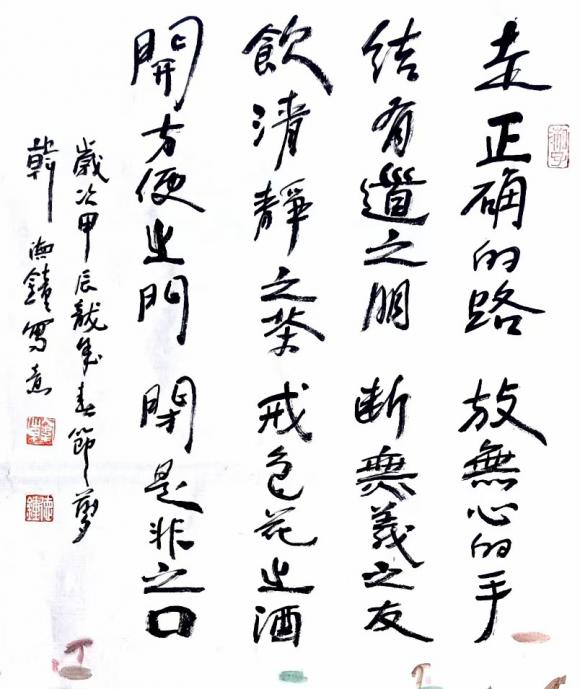 走正确的路 放無心的手
結有道之朋 断無義之友
飲清靜之茶 戒色花之酒
開方便之門 閉是非之口
歲次甲辰龍年春節
韓德鐘寫意